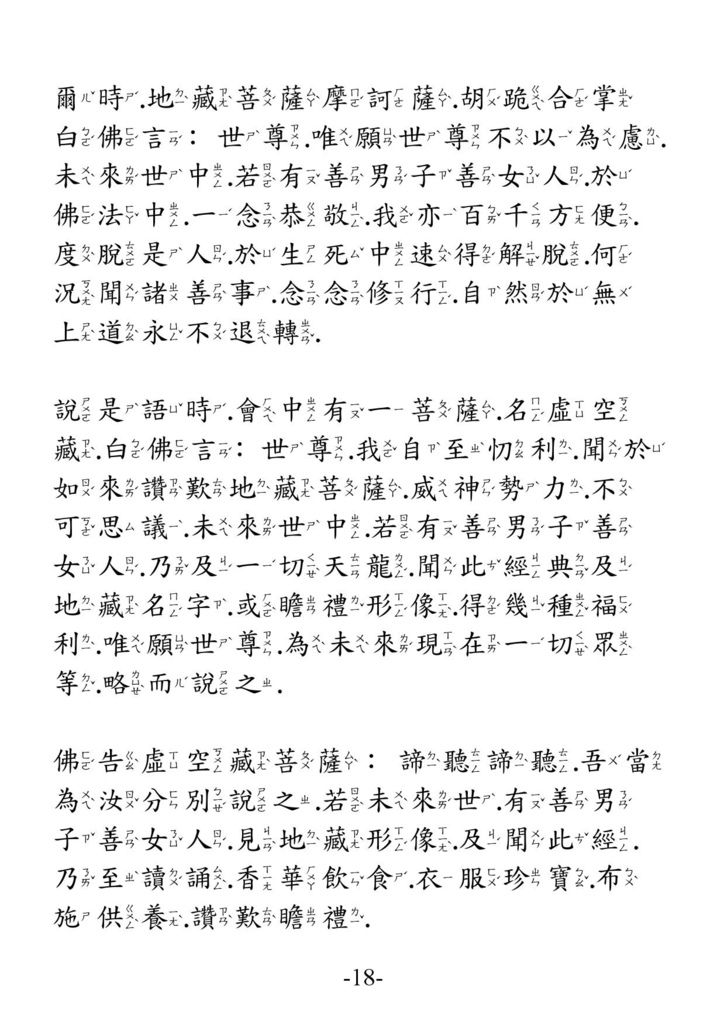 爾時.地藏菩薩摩訶薩.胡跪合掌
白佛言：世尊.唯願世尊不以為慮.
未來世中.若有善男子善女人.於
佛法中.一念恭敬.我亦百千方便.
度脫是人.於生死中速得解脫.何
況聞諸善事.念念修行.自然於無
上道永不退轉.
說是語時.會中有一菩薩.名虛空
藏.白佛言：世尊.我自至忉利.聞於
如來讚歎地藏菩薩.威神勢力.不
可思議.未來世中.若有善男子善
女人.乃及一切天龍.聞此經典及
地藏名字.或瞻禮形像.得幾種福
利.唯願世尊.為未來現在一切眾
等.略而說之.
佛告虛空藏菩薩：諦聽諦聽.吾當
為汝分別說之.若未來世.有善男
子善女人.見地藏形像.及聞此經.
乃至讀誦.香華飲食.衣服珍寶.布
施供養.讚歎瞻禮.
-18-